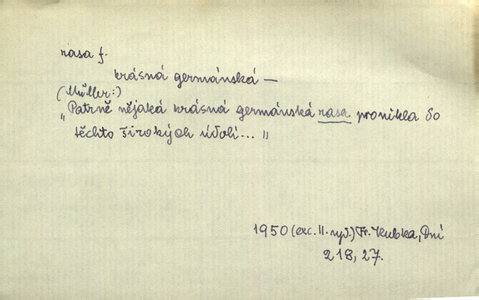 rasa f.
krásná germánská —
(Müller:)
„Patrně nějaká krásná germánská rasa pronikla do
těchto širokých údolí... "
1950 (exc. II. vyd.) Fr. Kubka, Dní
218, 27.